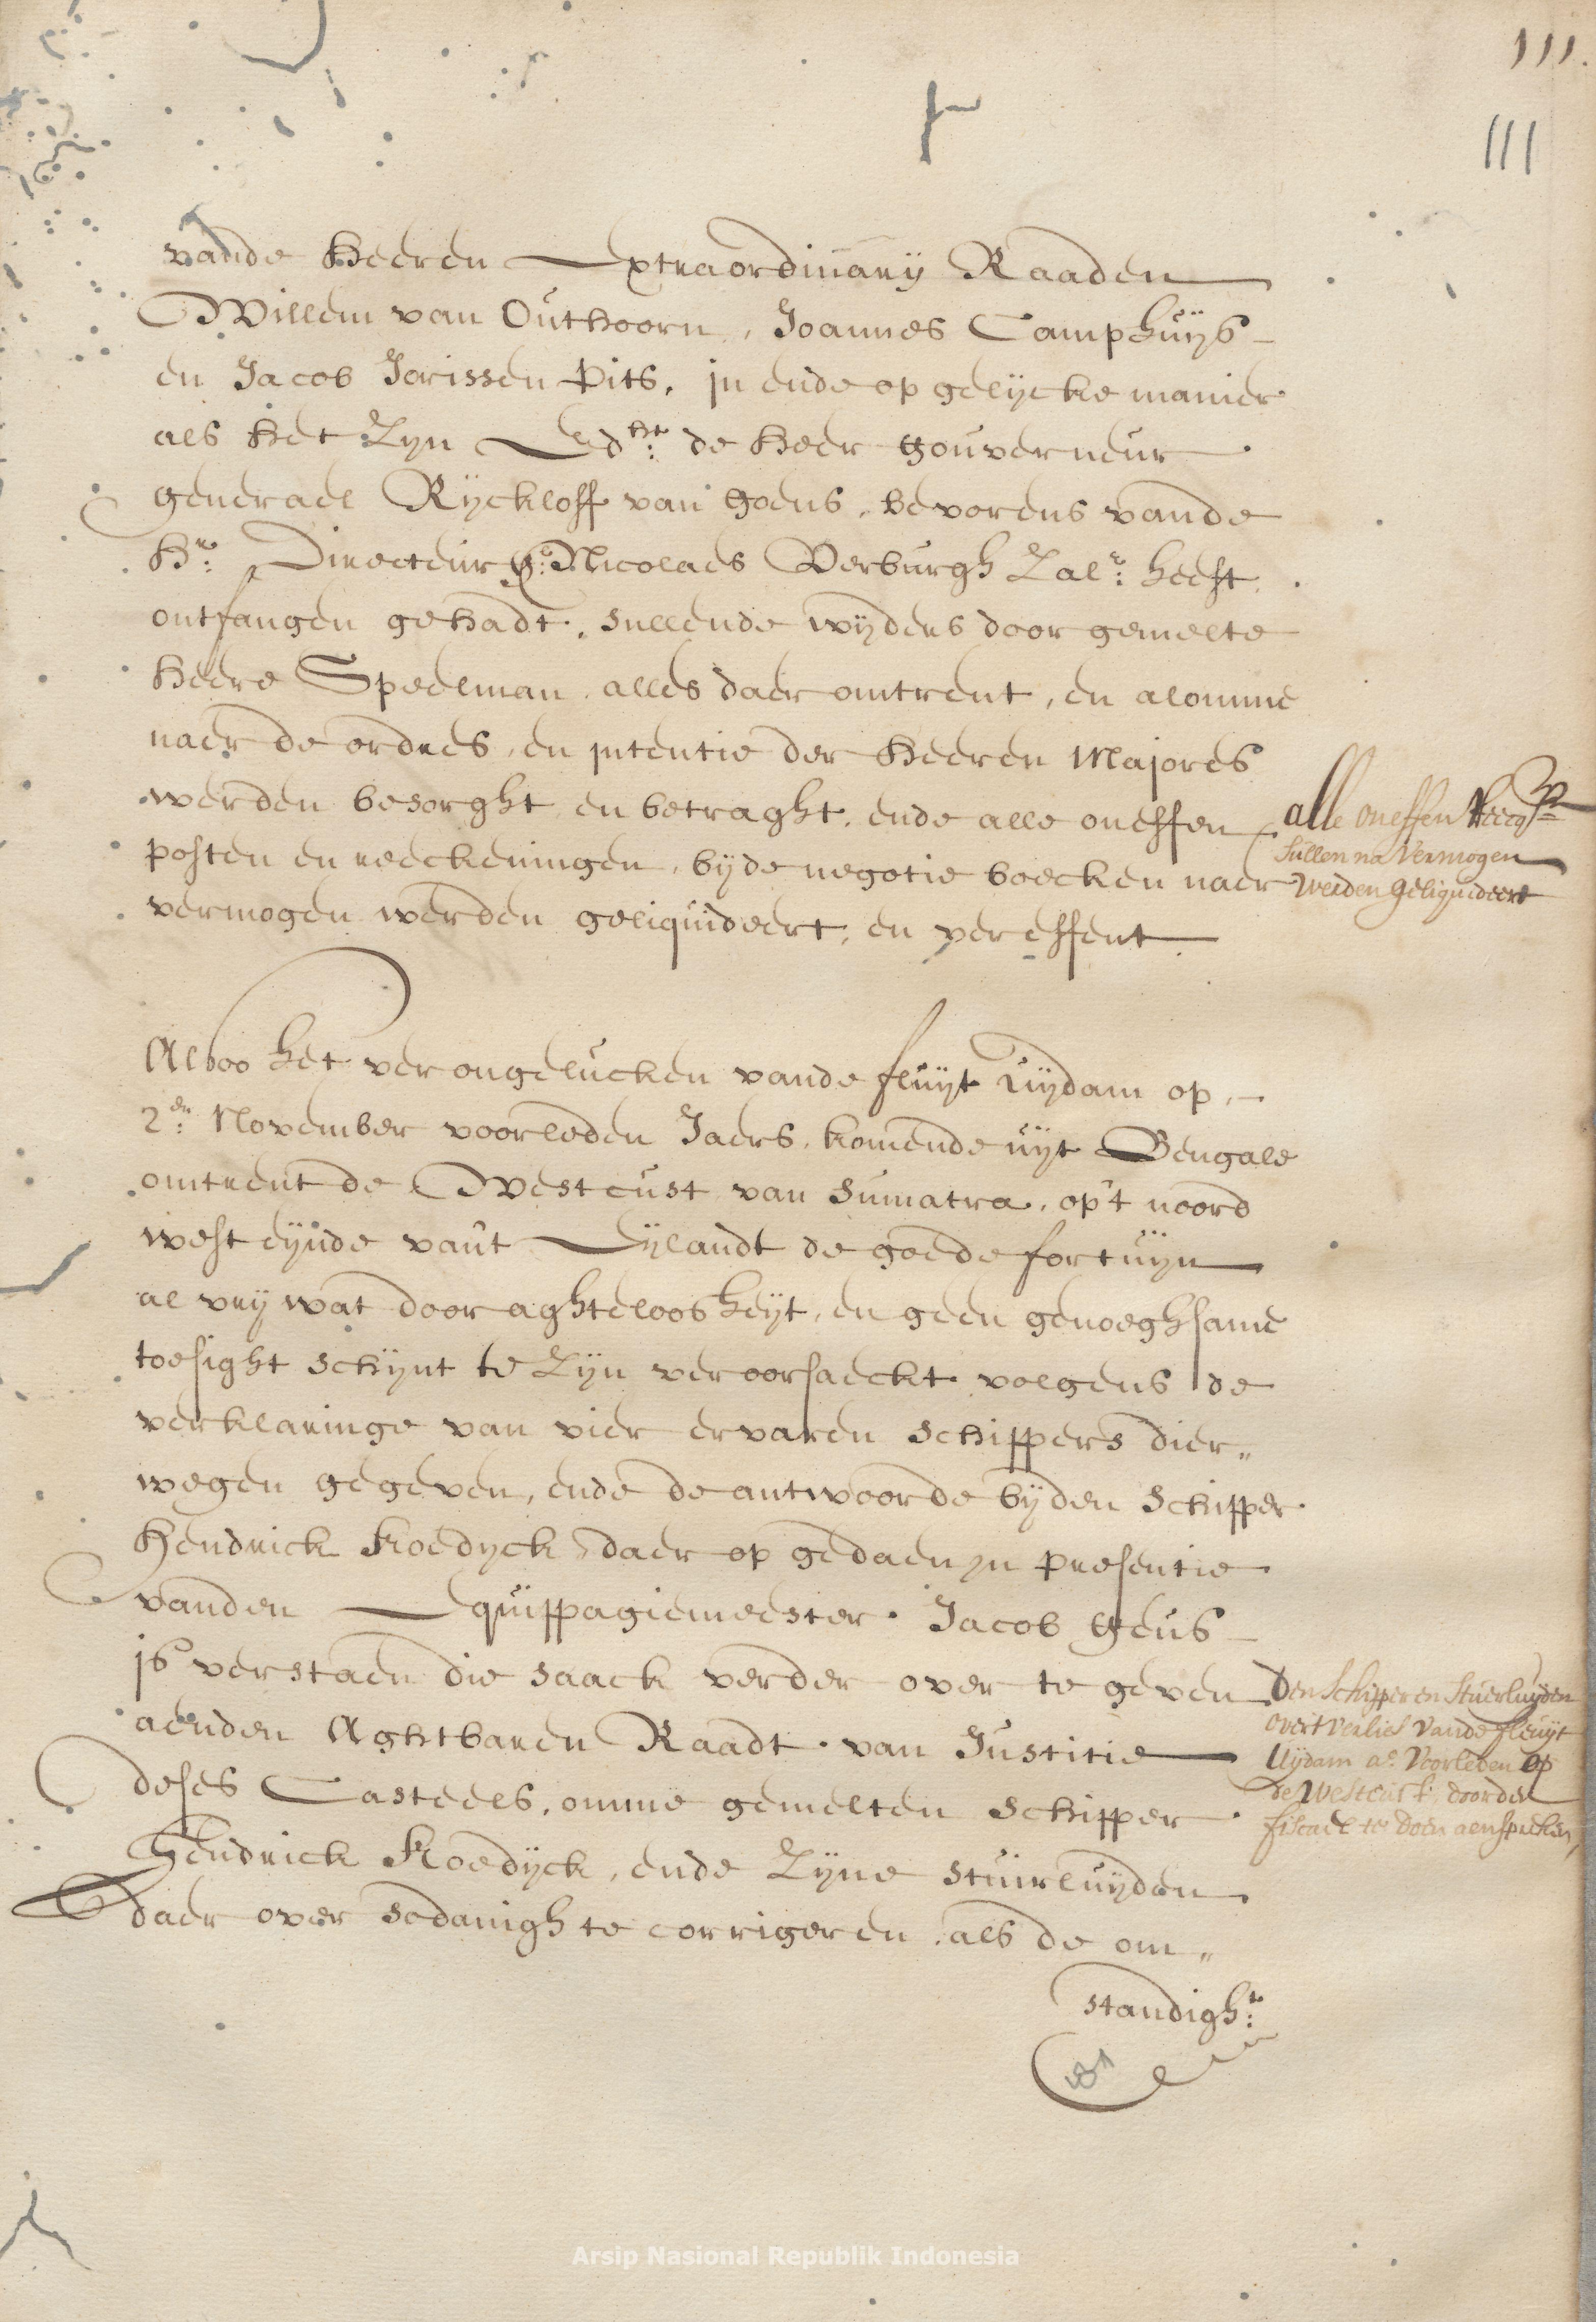 111.
111
vande Heeren Extraordinarij Raaden
Willem van Outhoorn, Joannes Camphuijs
en Jacob Jorissen Pits, in ende op gelijcke manier
als het Zijn Edht: de Heer Gouverneur
generael Rijckloff van Goens, bevorens vande
Hr: Directeur Gl: Nicolaes Verburgh Zalr: heeft
ontfangen gehadt, sullende wijders door gemelte
Heere Speelman alles daer omtrent, en alomme
naer de ordres, en intentie der Heeren Majores
werden besorght en betraght, ende alle oneffen
posten en reeckeningen, bijde negotie boecken naer
vermogen werden geliquideert, en vereffent
alle oneffen
sullen na Vermogen
werden geliquideert
Alsoo het verongelucken vande fluijt Uijdam op
2en: November voorleden Jaers, komende uijt Bengale
omtrent de Westcust van Sumatra, op't noord
west eijnde van't Eijlandt de goede fortuijn
al vrij wat door aghteloosheijt, en geen genoeghsame
toesight schijnt te Zijn veroorsaeckt volgens de
verklaringe van vier ervaren schippers dier„
wegen gegeven, ende de antwoorde bijden schipper
Hendrick Koedijck daer op gedaen in presentie
vanden Equippagiemeester Jacob Geus
is verstaen die saack verder over te geven
aenden Aghtbaren Raadt van Justitie
deses Casteels, omme gemelten schipper
Hendrick Koedijck, ende Zijne stuirluijden
daer over sodanigh te corrigeren, als de om„
standight:
Den schipper en Stuerluijden
over't verlies vande fleuijt
Uijdam ao: Voorleden op
de Westcust, door den
fiscael te doen aenspreken,
Arsip Nasional Republik Indonesia